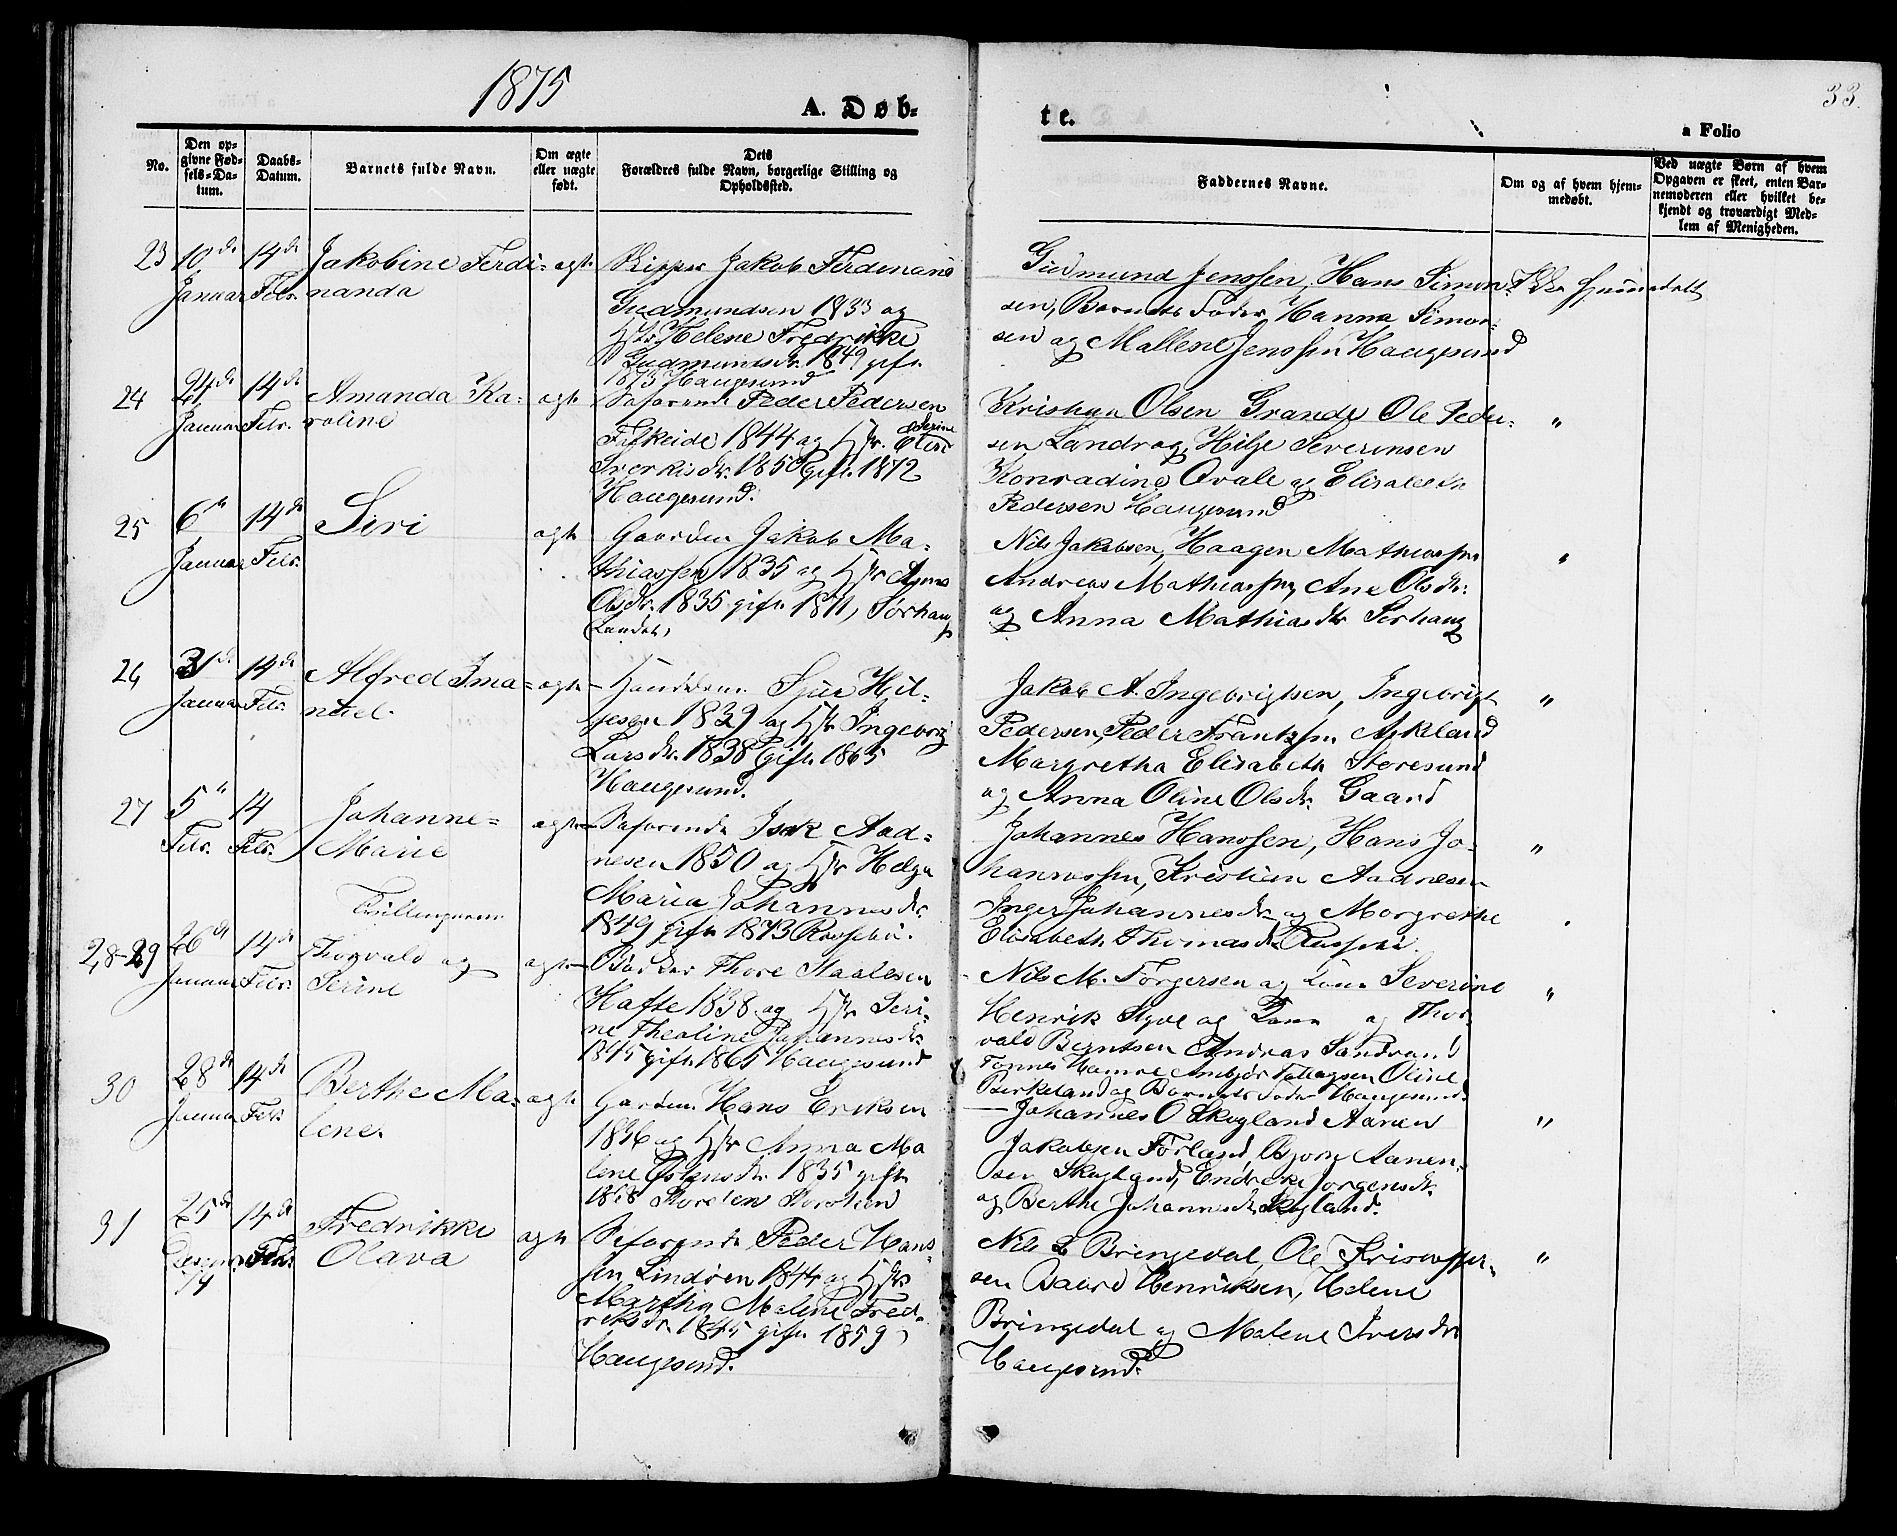 1875
A. Døb-
te.
33.
a Folio
No.
Den op-
givne Fød-
sels-Da-
tum.
Daabs-
Datum.
Barnets fulde Navn.
Om ægte
eller uægte
født.
Dets
Forældres fulde Navn, borgerlige Stilling og
Opholdssted.
Faddernes Navne.
Om og af hvem hjem-
medøbt.
Ved uægte Børn af hvem
Opgaven er skeet, enten Bar-
nemoderen eller hvilket be-
kjendt og troværdigt Med-
lem af Menigheden.
23
10de
Januar
14de
Febr.
Jakobine Ferdi-
nanda
ægte
Skipper Jakob Ferdenand
Gudmundsen 1833 og
Hstr Helene Fredrikke
Gudmundsdr. 1849 gifte
1873 Haugesund
Gudmund Jenssen, Hans Simon-
sen, Barnets Fader, Hanna Simon-
sen og Mallene Jenssen Haugesund
Ikke hjemmedøbt
24
24de
Januar
14de
Febr.
Amanda Ka-
roline
ægte
Søfarende Peder Pedersen
Falkeide 1844 og Hstr.
Sverkisdr. 1850 gift. 1872
Haugesund.
Olsen Grande, Ole Peder-
sen Sandr og, Hilje Severinsen
Konradine Qvale og Elisabeth
Pedersen Haugesund
"
25
6te
Januar
14de
Febr.
Siri
ægte
Gaardm. Jakob Ma-
thiassen 1835 og Hstr Agnes
Olsdr. 1835 gifte 1871, Sørhaug
(Landet)
Nils Jakobsen, Haagen Mathiassen
Andreas Mathiassen, Ane Olsdr.
og Anna Mathiasdtr Sørhaug
"
26
31de
Januar
14de
Febr.
Alfred Ima-
nuel.
ægte
Handelsm. Sjur Hil-
jesen 1839 og Hstr Ingeborg
Larsdr. 1838 gift. 1865
Haugesund.
Jakob A. Ingebrigtsen, Ingebrigt
Pedersen, Peder Frantzsen Askeland
Margretha Elisabeth Storesund
og Anna Oline Olsdr. Gaard
"
27
5te
Febr.
14
Febr.
Johanne
Marie
ægte
Søfarende Isak Aad-
nesen 1850 og Hstr Helga
Maria Johannesdr.
1849 gifte 1873 Rossebø.
Johannes Hanssen, Hans Jo-
hannessen, Kristian Aadnesen
Inger Johannesdr og Margrethe
Elisabeth Thomasdr Rossebø.
"
28-29
26de
Januar
14de
Febr.
Tvillingerne
Thorvald og
Serine
ægte
Bødker Thore Staalesen
Hafte 1838 og Hstr Seri-
ne Thealine Johannesdr.
1845 gifte 1865 Haugesund
Nils M. Torgersen og Kone Severine
Henrik Styve og Kone og Thor-
vald Berntsen Andreas Sandvand
Tønnes Hamre Ambjør Tollagsen Oline
Birkeland og Barnets Fader Haugesund.
"
30
28de
Januar
14de
Febr
Berthe Ma-
lene.
ægte
Gaardm. Hans Eriksen
1836 og Hstr Anna Ma
lene Østensdr. 1835 gifte
1858
Johannes O Skogland Aanen
Jakobsen Førland, Asjørn Aanen-
sen Skogland, Endreke Jørgensdr.
og Berthe Johannesdr Skogland.
"
31
25de
Decemb.
74
14de
Febr.
Fredrikke
Olava
ægte
Søfarende Peder Hans-
sen Lindøen 1844 og Hstr
Marthia Malene Fred-
reksdr. 1845 gifte 1859
Haugesund.
Nils L Bringedal, Ole Kristoffer-
sen Baard Henriksen, Helene
Bringedal og Malene Iversdr
Haugesund.
"